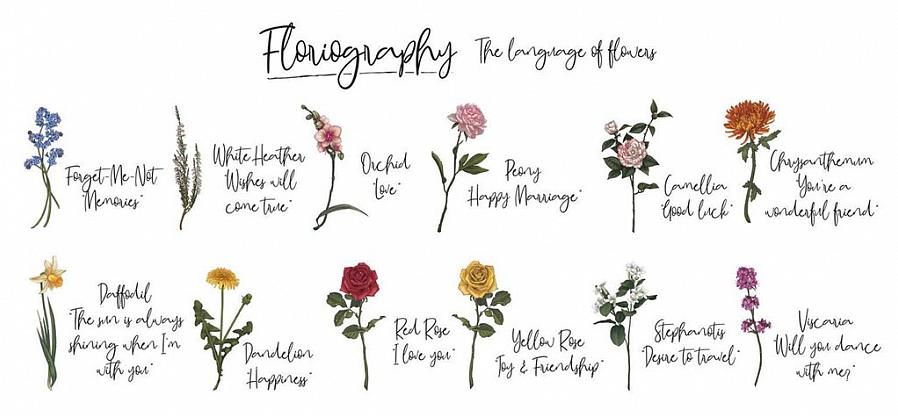 Floriography The language of flowers
Forget-Me-Not
Memories"
White Heather
Wishes will
come true"
Orchid
"Love"
Peony
"Happy Marriage"
Camellia
"Good luck"
Chrysanthemum
You're a
wonderful friend"
Daffodil
The sun is always
shining when I'm
with you"
Dandelion
Happiness"
Red Rose
I love you"
Yellow Rose
"Joy & Friendship"
Stephanotis
"Desire to travel"
Viscaria
Will you dance
with me?"